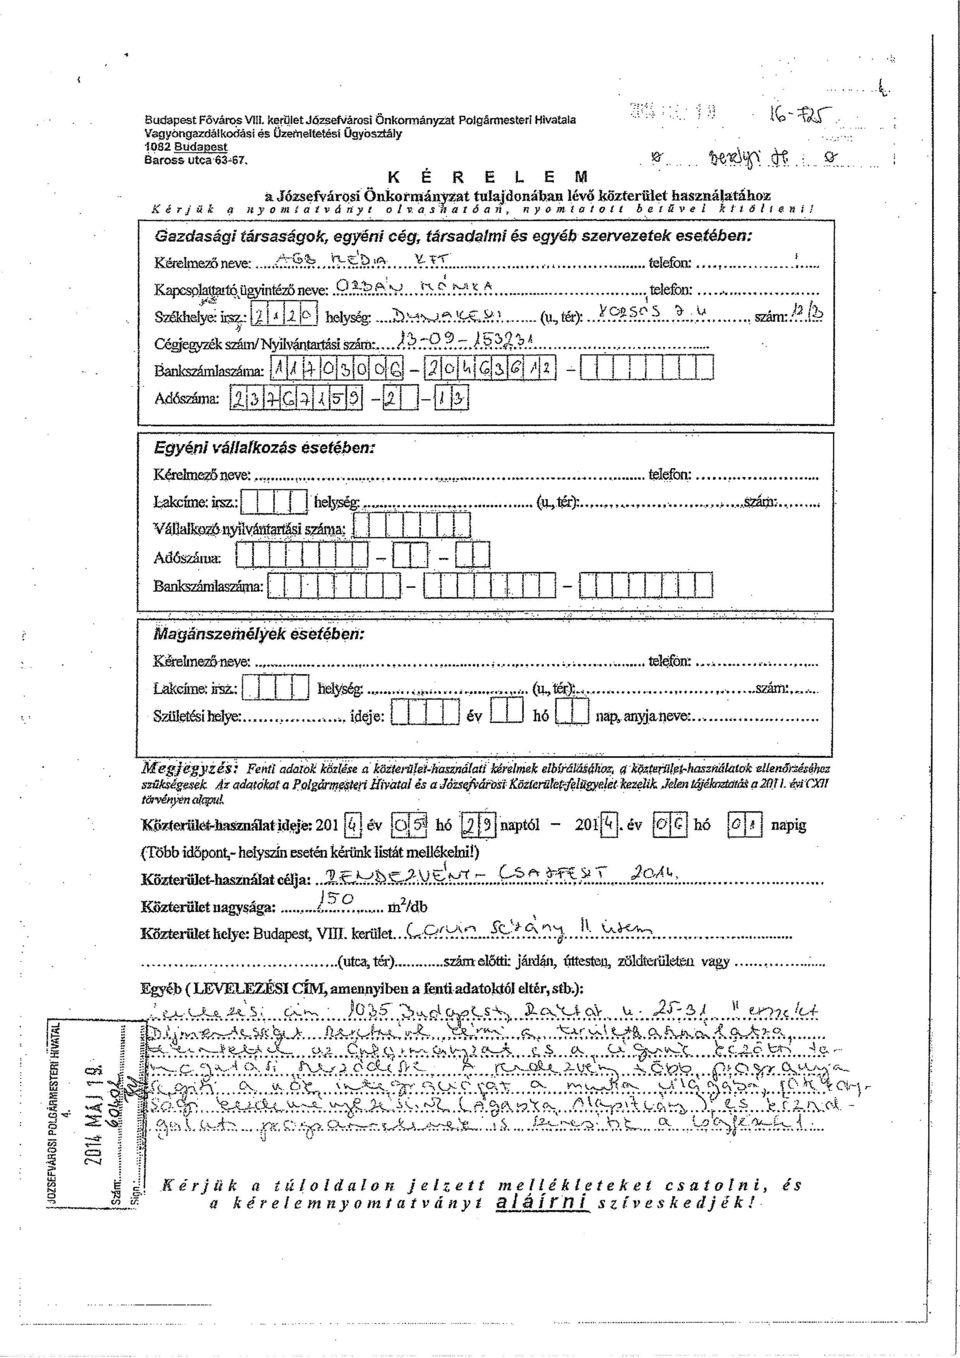 Budapest Főváros VIII. kerület Józsefvárosi Önkormányzat Polgármesteri Hivatala
Vagyongazdálkodási és Üzemeltetési Ügyosztály
1082 Budapest
Baross utca 63-67.
16-725
K É R E L E M
a Józsefvárosi Önkormányzat tulajdonában lévő közterület használatához
Kérjük a nyomtatványt olvashatóan, nyomtatott betűvel kitölteni!
Gazdasági társaságok, egyéni cég, társadalmi és egyéb szervezetek esetében:
Kérelmező neve: MÉDIA KFT telefon:
Kapcsolattartó, ügyintéző neve: ORBÁN MÓNIKA telefon:
Székhelye: irsz.: 2120 helység: DUNAKESZI (u., tér): szám:
Cégjegyzék szám/Nyilvántartási szám: 13-09-153231
Bankszámlaszáma: 11730006 - 20463612 -
Adószáma: 23767159 - 2 - 13
Egyéni vállalkozás esetében:
Kérelmező neve: telefon:
Lakcíme: irsz.: helység: (u., tér): szám:
Vállalkozó nyilvántartási száma:
Adószáma: - -
Bankszámlaszáma: - -
Magánszemélyek esetében:
Kérelmező neve: telefon:
Lakcíme: irsz.: helység: (u., tér): szám:
Születési helye: ideje: év hó nap, anyja neve:
Megjegyzés: Fenti adatok közlése a közterület-használati kérelmek elbírálásához, a közterület-használatok ellenőrzéséhez
szükségesek. Az adatokat a Polgármesteri Hivatal és a Józsefvárosi Közterület-felügyelet kezelik. Jelen tájékoztatás a 2011. évi CXII
törvényen alapul.
Közterület-használat ideje: 2014 év 05 hó 29 naptól – 2014. év 06 hó 01 napig
(Több időpont,- helyszín esetén kérünk listát mellékelni!)
Közterület-használat célja: RENDEZVÉNY - CSAJFESZT 2014.
Közterület nagysága: 150 m²/db
Közterület helye: Budapest, VIII. kerület Corvin Sétány II ütem
(utca, tér) szám előtti: járdán, úttesten, zöldterületen vagy
Egyéb (LEVELEZÉSI CÍM, amennyiben a fenti adatoktól eltér, stb.):
levelezési cím: 1035 Budapest, Raktár u. 25-31 II emelet
Díjmentességet szeretnék kérni a területhasználatra
tekintettel az Önkormányzat és a cégünk közötti tá-
mogatási szerződésre. A rendezvény több programja
segíti a nők integrációját a munka világába, jótékony-
sági kezdeményezésünk Alapítvány) és szól-
gálati programelemek is
Kérjük a túloldalon jelzett mellékleteket csatolni, és
a kérelemnyomtatványt aláírni szíveskedjék!
JÓZSEFVÁROSI POLGÁRMESTERI HIVATAL
4.
2014 MÁJ 19.
Szám:
Sign.: